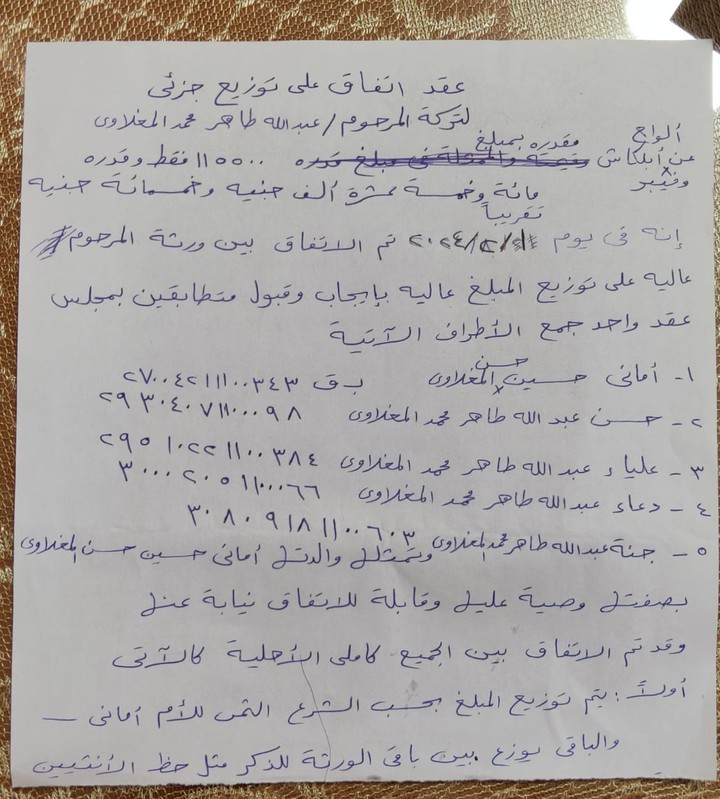 عقد اتفاق على توزيع جزئى
لتركة المرحوم / عبدالله طاهر محمد المغلاوى
ألواح
مقدره بمبلغ
عن أبلكاش قيمته والممثلة فى مبلغ قدره ١١٥٥٠٠ فقط وقدره
وفيبر
مائة وخمسة عشرة ألف جنيه وخمسمائة جنيه
تقريباً
إنه فى يوم ٢٠٢٤ تم الاتفاق بين ورثة المرحوم
عاليه على توزيع المبلغ عاليه بإيجاب وقبول متطابقين بمجلس
عقد واحد جمع الأطراف الآتية
١- أمانى حسين حسن المغلاوى ب ق ٢٧٠٠٤٢١١١٠٠٣٤٣
٢- حسن عبد الله طاهر محمد المغلاوى ٢٩٣٠٤٠٧١١٠٠٠٩٨
٣- علياء عبد الله طاهر محمد المغلاوى ٢٩٥١٠٢٢١١٠٠٣٨٤
٤- دعاء عبدالله طاهر محمد المغلاوى ٣٠٠٠٢٠٥١١٠٠٠٦٦
٣٠٨٠٩١٨١١٠٠٦٠٣
٥- جنة عبدالله طاهر محمد المغلاوى وتمثلها والدتها أمانى حسين حسن المغلاوى
بصفتها وصية عليها وقابلة للاتفاق نيابة عنها
وقد تم الاتفاق بين الجميع كاملى الأهلية كالآتى
أولاً : يتم توزيع المبلغ بحسب الشرع الثمن للأم أمانى –
والباقى يوزع بين باقى الورثة للذكر مثل حظ الأنثيين